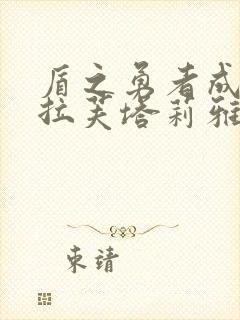 盾之勇者成
拉芙塔莉雅
束靖